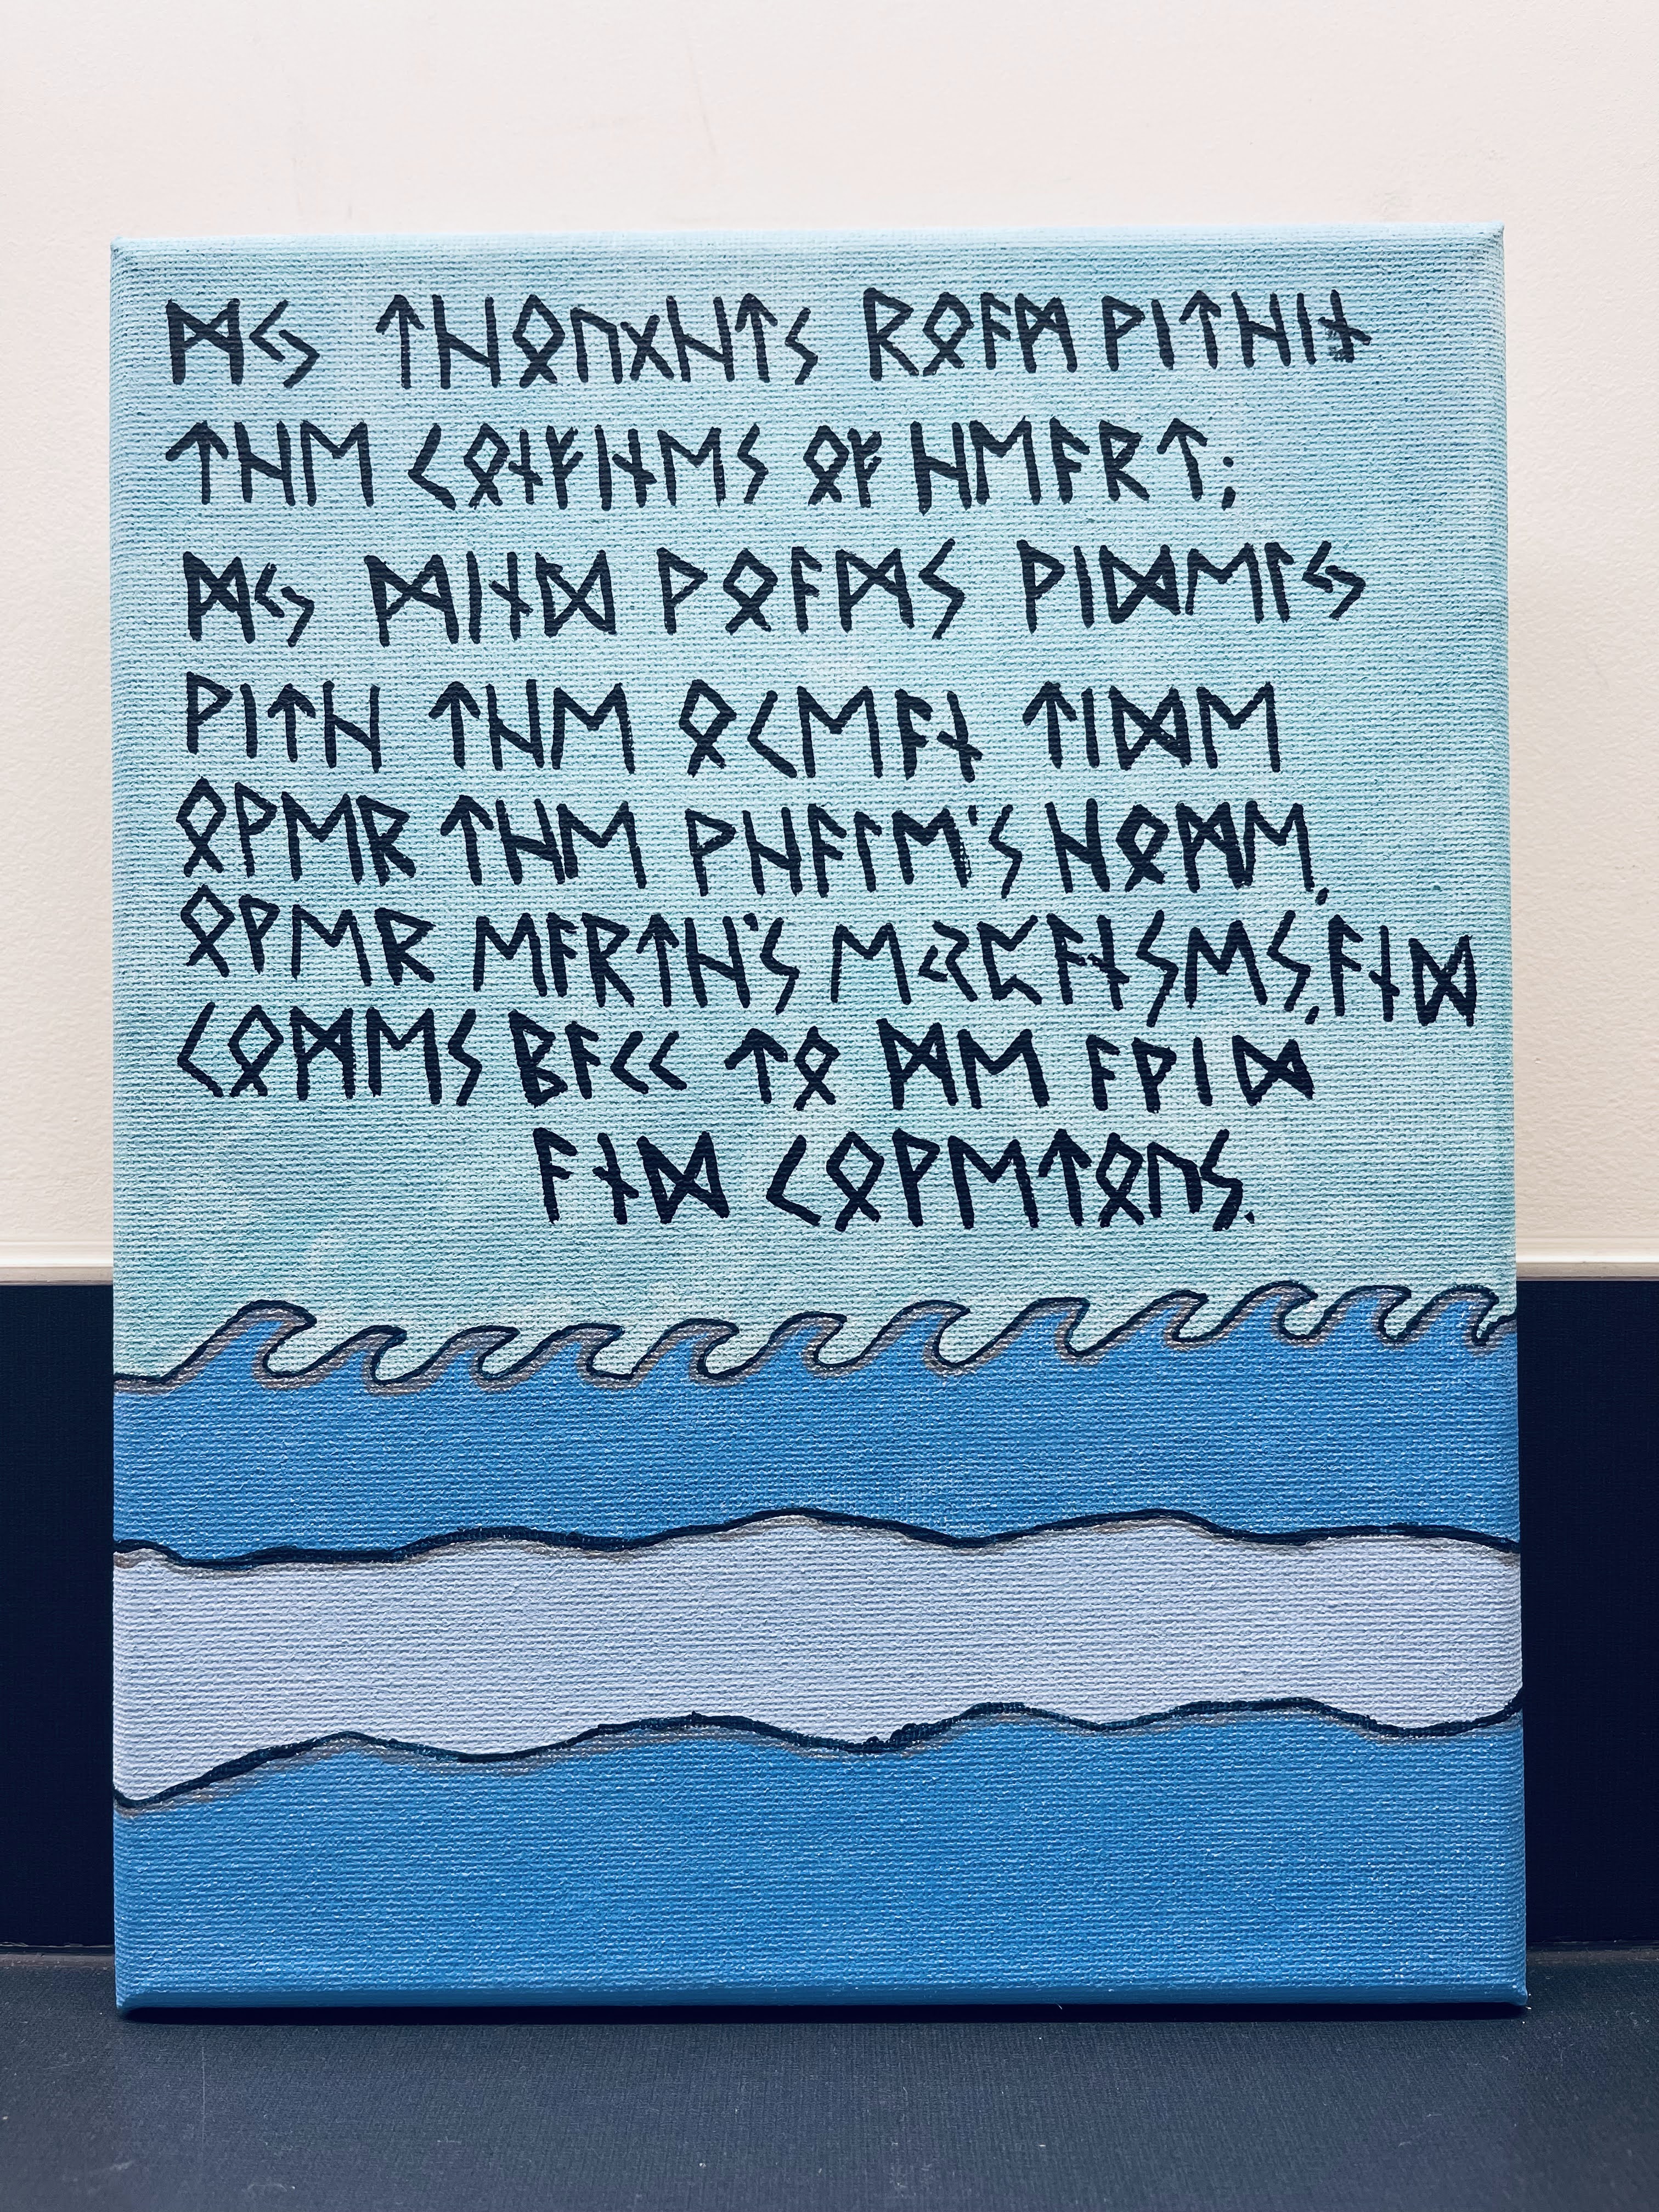 ᛗᛃ ᛏᚺᛟᚢᚷᚺᛏᛋ ᚱᛟᚨᛗ ᚹᛁᛏᚺᛁᚾ
ᛏᚺᛖ ᚲᛟᚾᚠᛁᚾᛖᛋ ᛟᚠ ᚺᛖᚨᚱᛏ;
ᛗᛃ ᛗᛁᚾᛞ ᚹᛟᚨᛗᛋ ᚹᛁᛞᛖᛚᛃ
ᚹᛁᛏᚺ ᛏᚺᛖ ᛟᚲᛖᚨᚾ ᛏᛁᛞᛖ
ᛟᚹᛖᚱ ᛏᚺᛖ ᚹᚺᚨᛚᛖ'ᛋ ᚺᛟᛗᛖ,
ᛟᚹᛖᚱ ᛖᚨᚱᛏᚺ'ᛋ ᛖᚲᛋᛈᚨᚾᛋᛖᛋ, ᚨᚾᛞ
ᚲᛟᛗᛖᛋ ᛒᚨᚲᚲ ᛏᛟ ᛗᛖ ᚨᚹᛁᛞ
ᚨᚾᛞ ᚲᛟᚹᛖᛏᛟᚢᛋ.